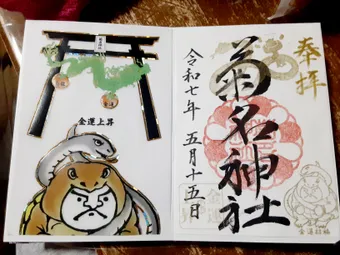 奉拝
菊名神社
令和七年 五月十五日
金運上昇
金運招福